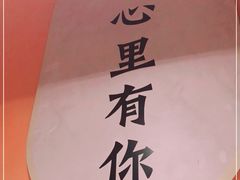 心里有你